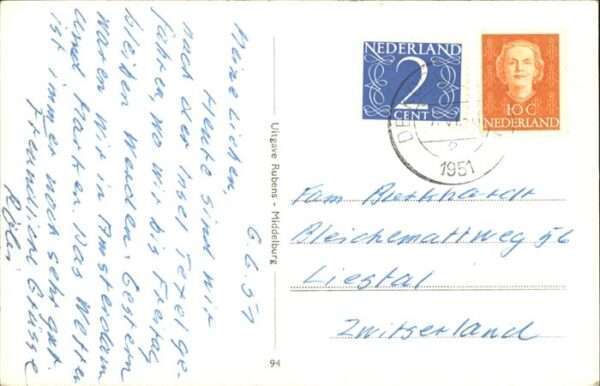 6.6.51
Meine Lieben,
Heute sind wir
nach der Insel Texel ge-
fahren, wo wir bis Freitag
bleiben werden. Gestern
waren wir in Amsterdam
und Marken. Das Wetter
ist immer noch sehr gut.
Freundliche Grüsse
Uitgave Rubens - Middelburg
94
NEDERLAND
2
CENT
10 C
NEDERLAND
1951
Fam Burkhardt
Bleichemattweg 56
Liestal
Zwitserland